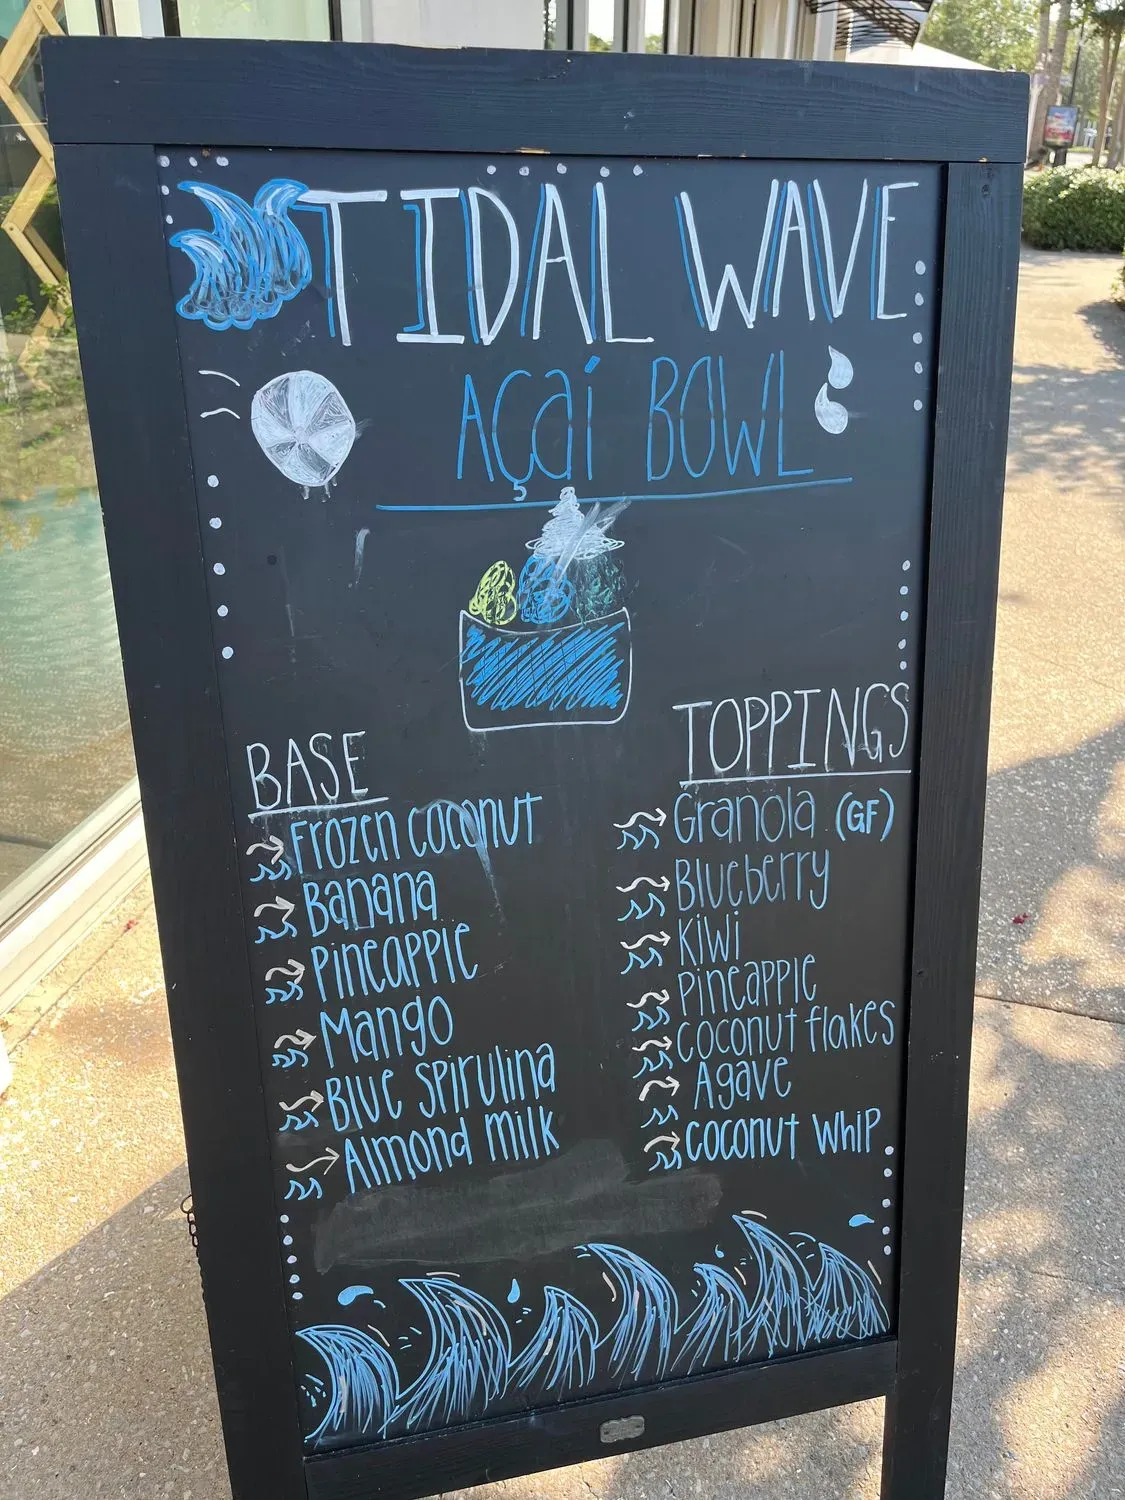 TIDAL WAVE
AÇaí BOWL
BASE
Frozen coconut
Banana
Pineapple
Mango
Blue spirulina
Almond milk
TOPPINGS
Granola (GF)
Blueberry
Kiwi
Pineapple
coconut flakes
Agave
coconut whip